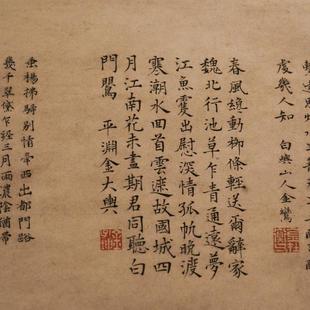 處幾人知 白嶼山人金鸞
春風纔動柳條輕送爾辭家
魏北行池草乍青通遠夢
江魚出慰深情孤帆晚渡
寒潮水回首雲遮故國城四
月江南花未盡期君同聽白
門鸎 平淵金大輿
垂楊拂騎別情牽西出都門路
幾千翠黛乍經三月雨濃陰猶帶